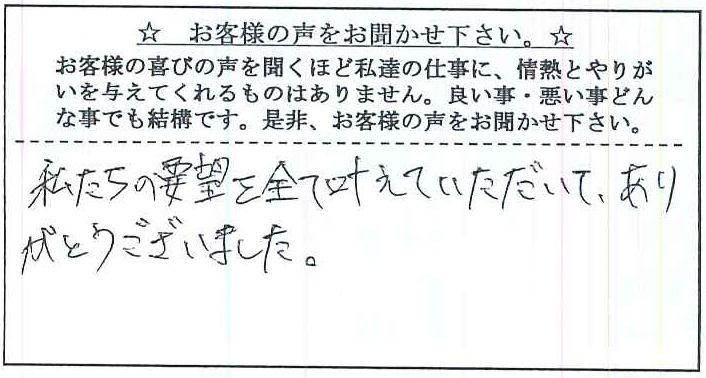 ☆ お客様の声をお聞かせ下さい。☆
お客様の喜びの声を聞くほど私達の仕事に、情熱とやりが
いを与えてくれるものはありません。良い事・悪い事どん
な事でも結構です。是非、お客様の声をお聞かせ下さい。
私たちの要望を全て叶えていただいて、あり
がとうございました。